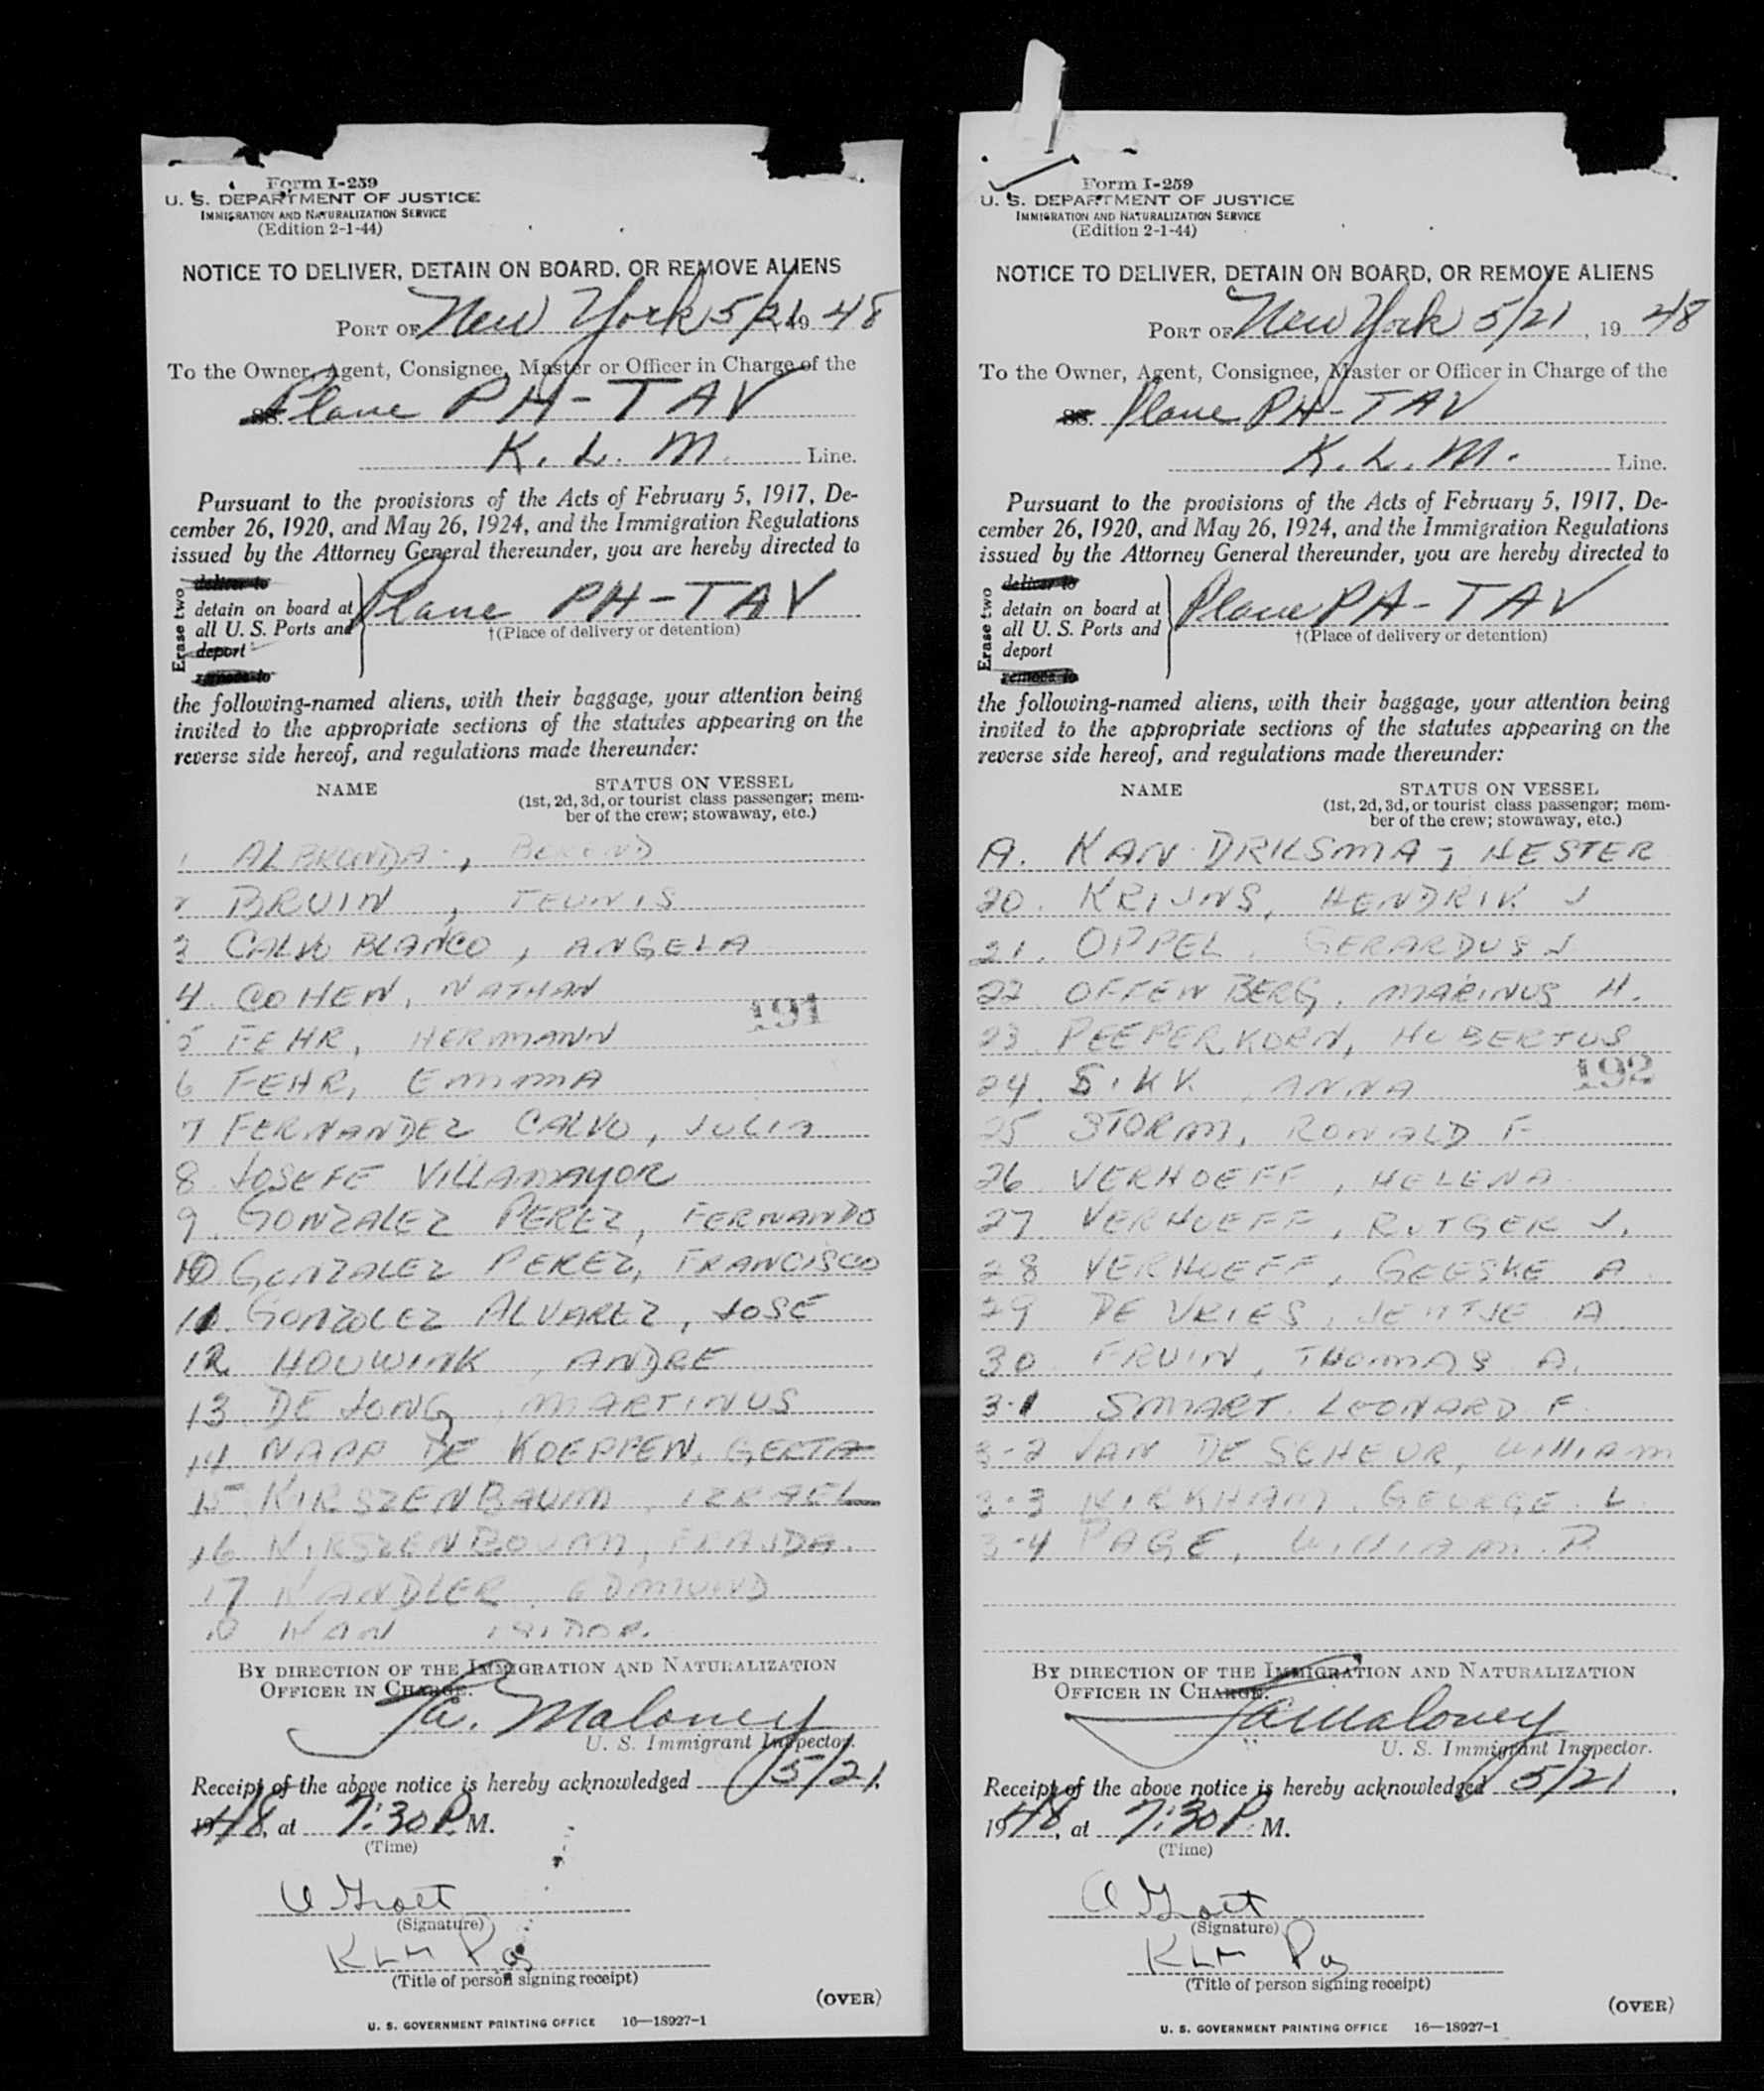 Form I-259
U. S. DEPARTMENT OF JUSTICE
IMMIGRATION AND NATURALIZATION SERVICE
(Edition 2-1-44)
NOTICE TO DELIVER, DETAIN ON BOARD, OR REMOVE ALIENS
PORT OF New York 5/21 19 48
To the Owner, Agent, Consignee, Master or Officer in Charge of the
SS. Plane PH-TAV
K. L. M. Line.
Pursuant to the provisions of the Acts of February 5, 1917, De-
cember 26, 1920, and May 26, 1924, and the Immigration Regulations
issued by the Attorney General thereunder, you are hereby directed to
Erase two
deliver to
detain on board at
all U. S. Ports and
deport
remove to
Plane PH-TAV
†(Place of delivery or detention)
the following-named aliens, with their baggage, your attention being
invited to the appropriate sections of the statutes appearing on the
reverse side hereof, and regulations made thereunder:
NAME STATUS ON VESSEL
(1st, 2d, 3d, or tourist class passenger; mem-
ber of the crew; stowaway, etc.)
1 ALBRONDA,
2 BRUIN, TEUNIS
3 CALVO BLANCO, ANGELA
4. COHEN, NATHAN
191
5 FEHR, HERMANN
6 FEHR, EMMA
7 FERNANDEZ CALVO, JULIA
8 JOSEFE VILLAMAYOR
9. GONZALEZ PEREZ, FERNANDO
10 GONZALEZ PEREZ, FRANCISCO
11. GONZOLEZ ALVAREZ, JOSE
12 HOUWINK, ANDRE
13. DE JONG, MARTINUS
14. NAPP DE KOEPPEN, GERTA
15 KIRSZENBAUM, IZRAEL
16 KIRSZENBOUM, FRAJDA.
17 KANDLER, EDMUND
18 KAN ISIDOR.
BY DIRECTION OF THE IMMIGRATION AND NATURALIZATION
OFFICER IN CHARGE.
Maloney
U. S. Immigrant Inspector.
Receipt of the above notice is hereby acknowledged 5/21,
1948, at 7:30 P. M.
(Time)
(Signature)
KLM
(Title of person signing receipt)
(OVER)
U. S. GOVERNMENT PRINTING OFFICE 16—18927-1
Form I-259
U. S. DEPARTMENT OF JUSTICE
IMMIGRATION AND NATURALIZATION SERVICE
(Edition 2-1-44)
NOTICE TO DELIVER, DETAIN ON BOARD, OR REMOVE ALIENS
PORT OF New York 5/21, 19 48
To the Owner, Agent, Consignee, Master or Officer in Charge of the
SS. Plane PH-TAV
K. L. M. Line.
Pursuant to the provisions of the Acts of February 5, 1917, De-
cember 26, 1920, and May 26, 1924, and the Immigration Regulations
issued by the Attorney General thereunder, you are hereby directed to
Erase two
deliver to
detain on board at
all U. S. Ports and
deport
remove to
Plane PH-TAV
†(Place of delivery or detention)
the following-named aliens, with their baggage, your attention being
invited to the appropriate sections of the statutes appearing on the
reverse side hereof, and regulations made thereunder:
NAME STATUS ON VESSEL
(1st, 2d, 3d, or tourist class passenger; mem-
ber of the crew; stowaway, etc.)
19. KAN DRILSMA, HESTER
20. KRIJNS, HENDRIK J
21. OPPEL, GERARDUS J
22 OFFENBERG, MARINUS H.
23 PEEPERKORN, HUBERTUS
192
24. SIKK, ANNA
25 STORM, RONALD F
26 VERHOEFF, HELENA
27 VERHOEFF, RUTGER J.
28 VERHOEFF, GEESKE A
29 DE VRIES, A
30 FRUIN, THOMAS A.
31 SMART. LEONARD F.
32 VAN DE SCHEUR, WILLIAM
33 KIRKHAM, GEORGE L.
34 PAGE, WILLIAM P.
BY DIRECTION OF THE IMMIGRATION AND NATURALIZATION
OFFICER IN CHARGE.
Maloney
U. S. Immigrant Inspector.
Receipt of the above notice is hereby acknowledged 5/21,
1948, at 7:30 P. M.
(Time)
(Signature)
KLM
(Title of person signing receipt)
(OVER)
U. S. GOVERNMENT PRINTING OFFICE 16—18927-1